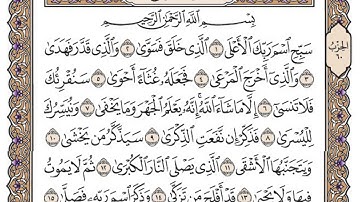 بِسْمِ ٱللَّهِ ٱلرَّحْمَٰنِ ٱلرَّحِيمِ
سَبِّحِ ٱسْمَ رَبِّكَ ٱلْأَعْلَى ١ ٱلَّذِى خَلَقَ فَسَوَّىٰ ٢ وَٱلَّذِى قَدَّرَ فَهَدَىٰ
٣ وَٱلَّذِىٓ أَخْرَجَ ٱلْمَرْعَىٰ ٤ فَجَعَلَهُۥ غُثَآءً أَحْوَىٰ ٥ سَنُقْرِئُكَ
فَلَا تَنسَىٰٓ ٦ إِلَّا مَا شَآءَ ٱللَّهُ إِنَّهُۥ يَعْلَمُ ٱلْجَهْرَ وَمَا يَخْفَىٰ ٧ وَنُيَسِّرُكَ
لِلْيُسْرَىٰ ٨ فَذَكِّرْ إِن نَّفَعَتِ ٱلذِّكْرَىٰ ٩ سَيَذَّكَّرُ مَن يَخْشَىٰ ١٠
وَيَتَجَنَّبُهَا ٱلْأَشْقَى ١١ ٱلَّذِى يَصْلَى ٱلنَّارَ ٱلْكُبْرَىٰ ١٢ ثُمَّ لَا يَمُوتُ
فِيهَا وَلَا يَحْيَىٰ ١٣ قَدْ أَفْلَحَ مَن تَزَكَّىٰ ١٤ وَذَكَرَ ٱسْمَ رَبِّهِۦ فَصَلَّىٰ ١٥
الحزب
٦٠